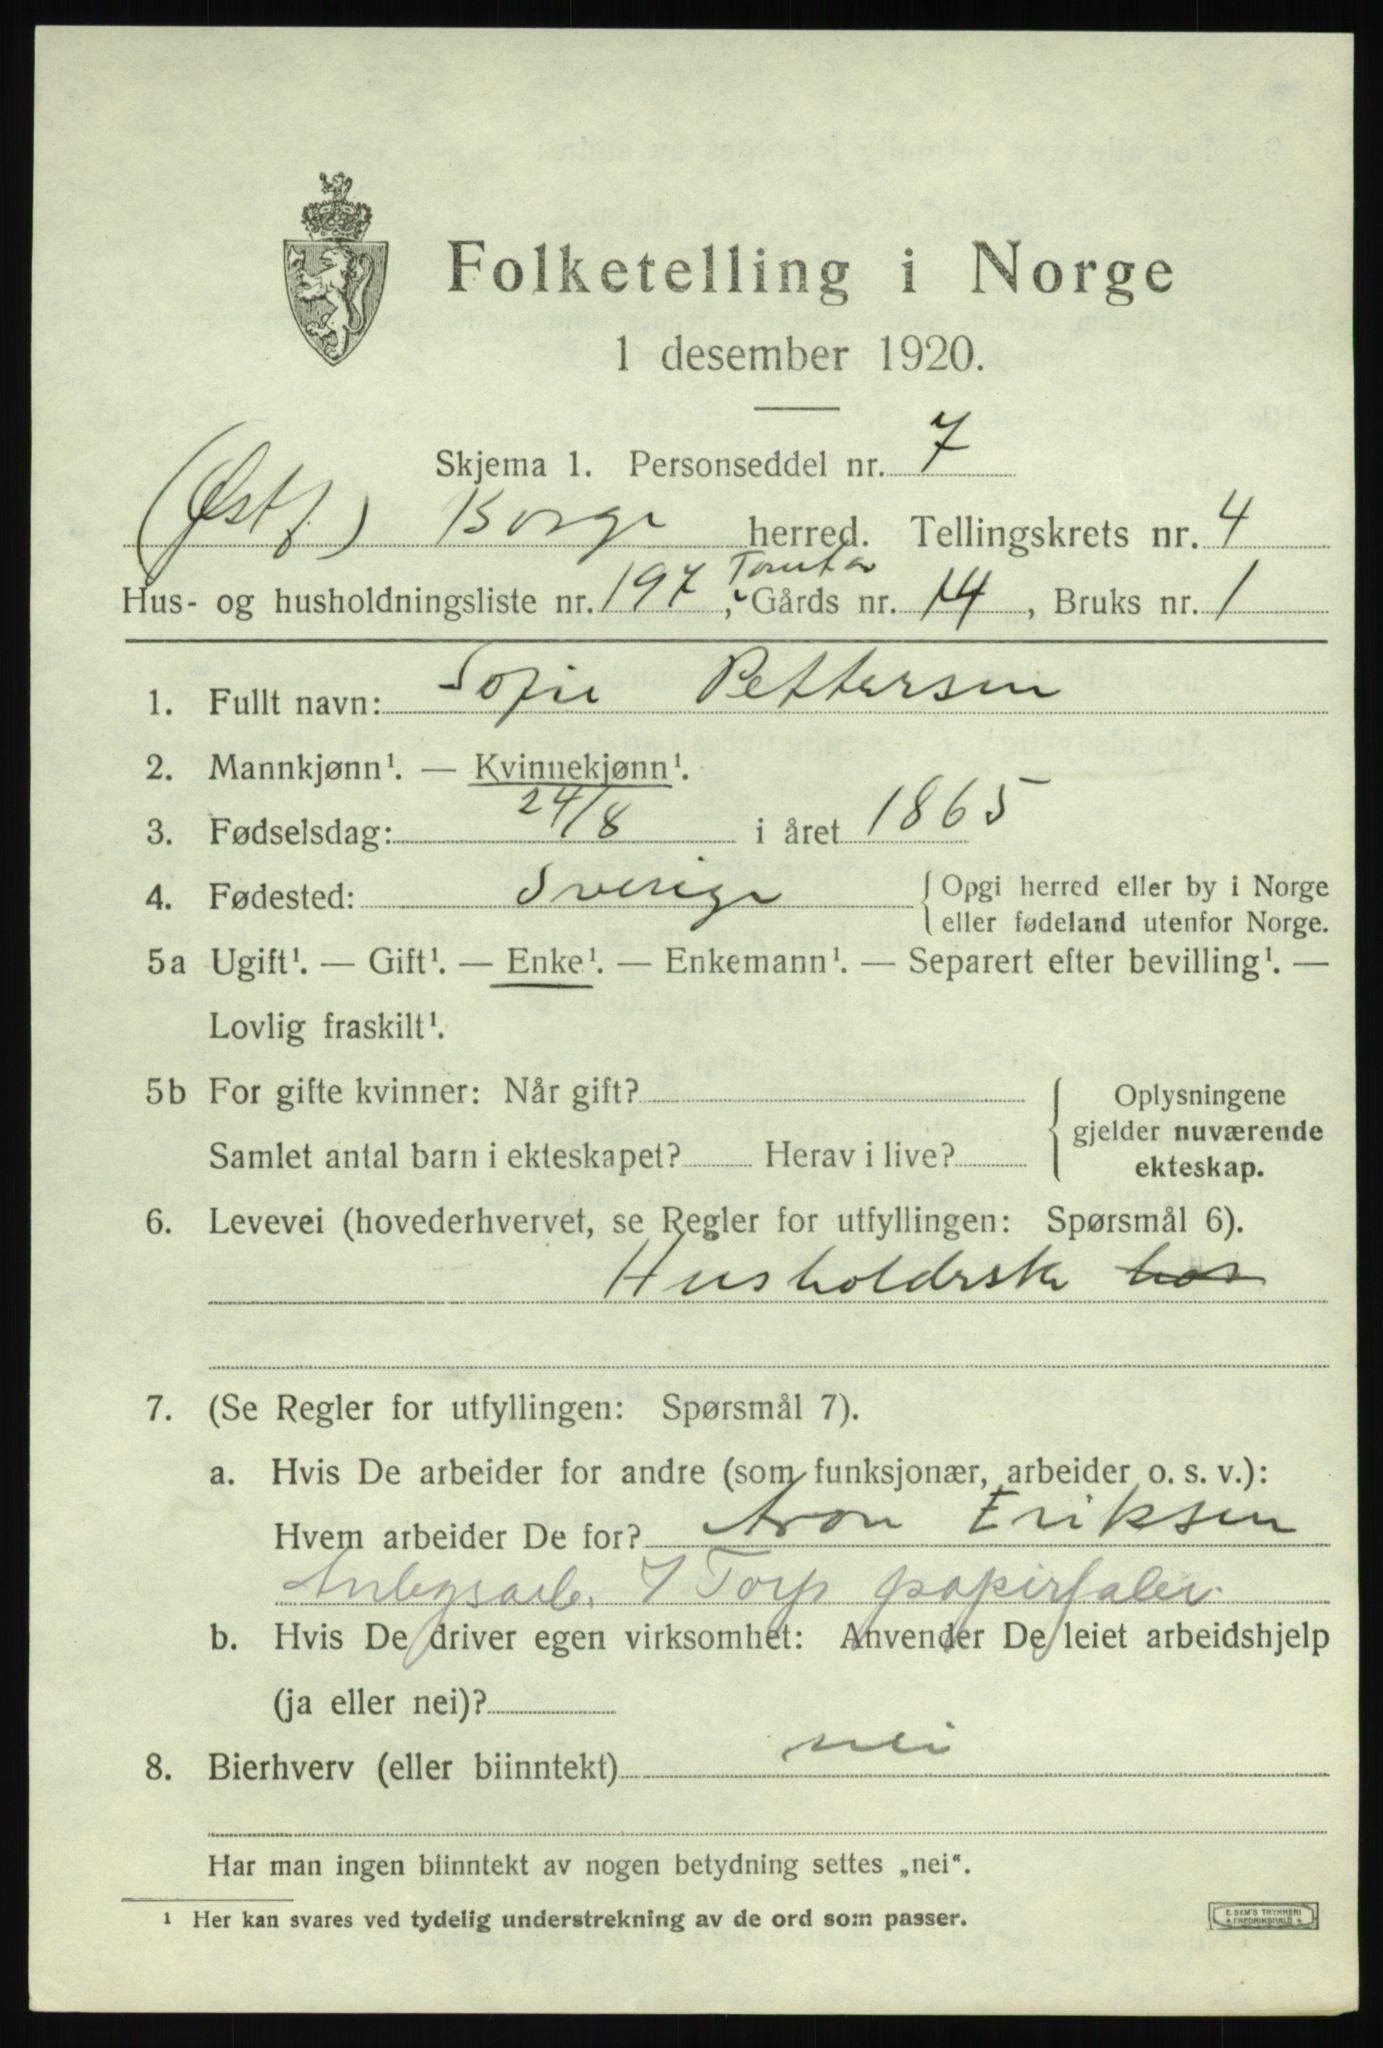 Folketelling i Norge
1 desember 1920.
Skjema 1. Personseddel nr. 7
(Østf.) Borge herred. Tellingskrets nr. 4
Hus- og husholdningsliste nr. 197, Gårds nr. 14, Bruks nr. 1
1. Fullt navn: Sofie Pettersen
2. Mannkjønn¹. — Kvinnekjønn¹.
3. Fødselsdag: 24/8 i året 1865
4. Fødested: Sverige { Opgi herred eller by i Norge
eller fødeland utenfor Norge.
5a Ugift¹. — Gift¹. — Enke¹. — Enkemann¹. — Separert efter bevilling¹. —
Lovlig fraskilt¹.
5b For gifte kvinner: Når gift? { Oplysningene
gjelder nuværende
Samlet antal barn i ekteskapet? Herav i live?
ekteskap.
6. Levevei (hovederhvervet, se Regler for utfyllingen: Spørsmål 6).
Husholderske hos
7. (Se Regler for utfyllingen: Spørsmål 7).
a. Hvis De arbeider for andre (som funksjonær, arbeider o. s. v.):
Hvem arbeider De for? Aron Eriksen
Torp papirfabr.
b. Hvis De driver egen virksomhet: Anvender De leiet arbeidshjelp
(ja eller nei)?
8. Bierhverv (eller biinntekt) nei
Har man ingen biinntekt av nogen betydning settes „nei“.
¹ Her kan svares ved tydelig understrekning av de ord som passer.
E. SEM'S TRYKKERI
FREDRIKSHALD